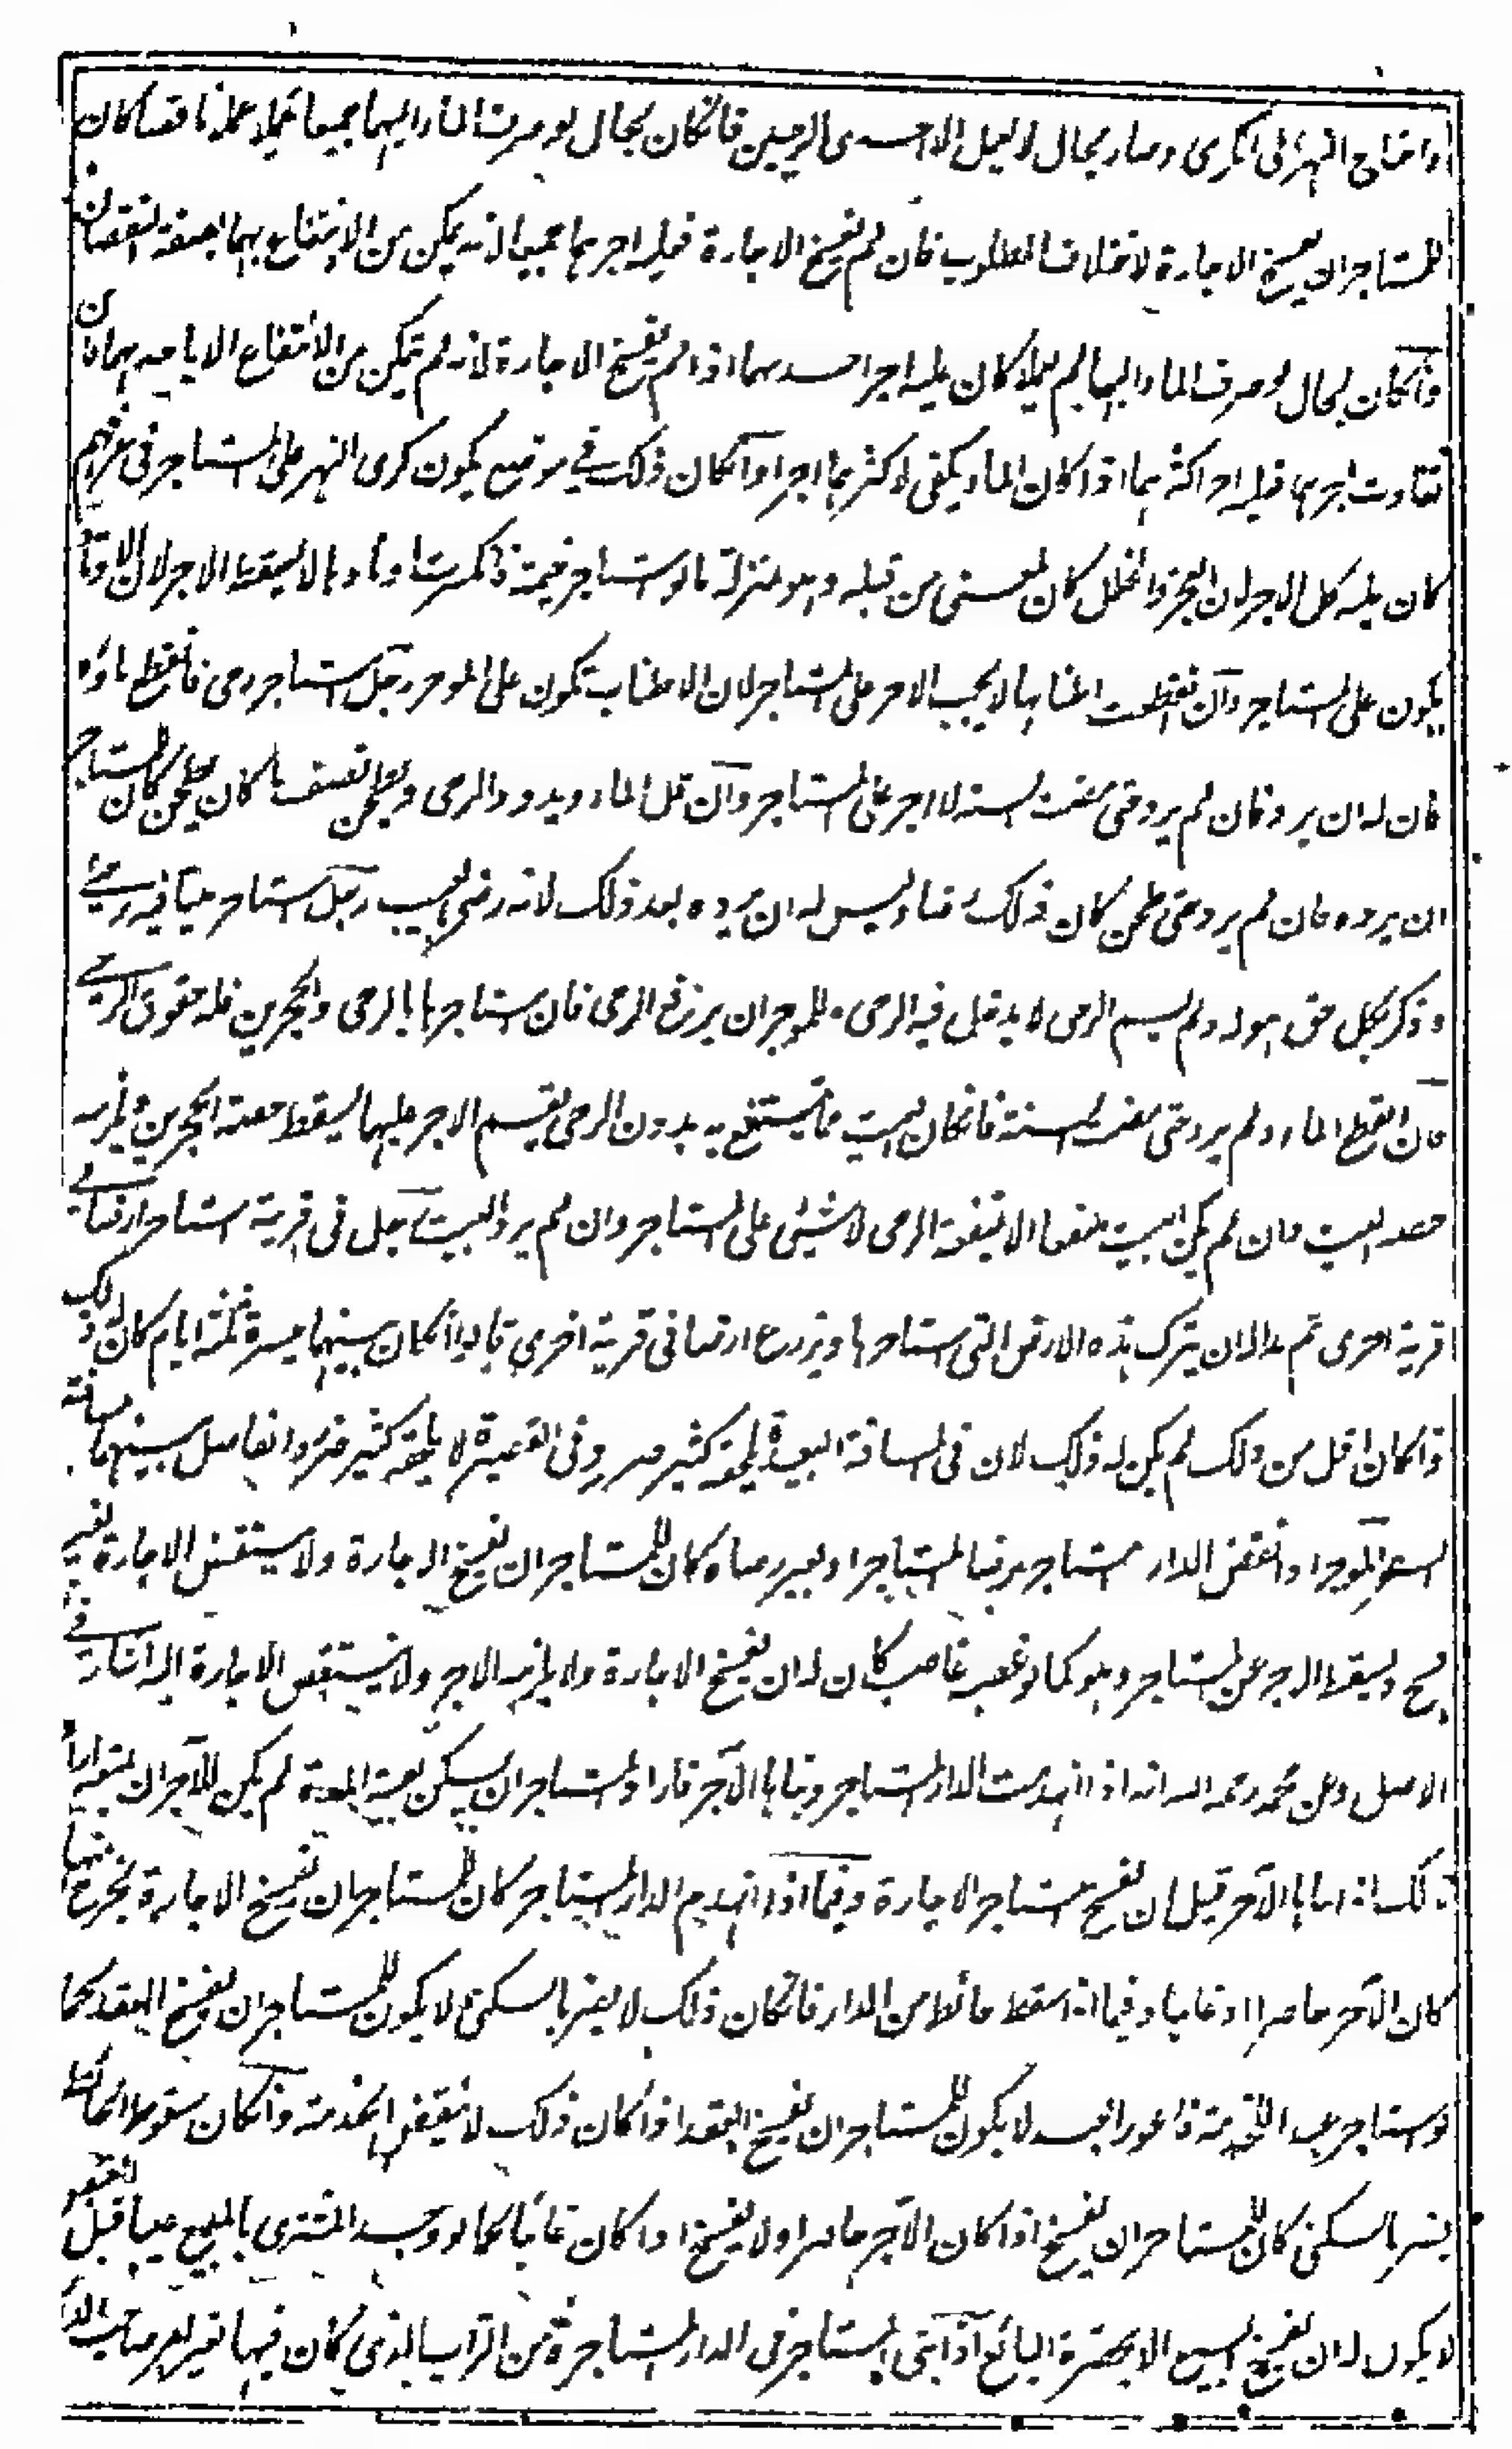 واحتاج النهر الى الكرى وصار بحال لا يعمل الا احدى الرحيين فان كان بحال لو صرف الماء اليهما جميعا عملا عملا ناقصا كان
للمستاجر ان يفسخ الاجارة لاختلاف المطلوب فان لم يفسخ الاجارة فعليه اجرهما جميعا لانه يمكن من الانتفاع بهما بصفة النقصان
وان كان بحال لو صرف الماء اليهما لم يعملا كان عليه اجر احدهما اذا لم يفسخ الاجارة لانه لم يتمكن من الانتفاع الا باحدهما فان
تفاوت اجرهما فعليه اجر اكثرهما اذا كان الماء يكفى لاكثرهما اجرا وان كان ذلك في موضع يكون كرى النهر على المستاجر في عرفهم
كان عليه كل الاجر لان العجز والخلل كان لمعنى من قبله وهو بمنزلة ما لو استاجر خيمة فانكسرت اوتادها لا يسقط الاجر لان الاوتاد
يكون على المستاجر وان انقطعت اطنابها لا يجب الاجر على المستاجر لان الاطناب تكون على الموجر رجل استاجر رحى فانقطع ماؤه
كان له ان يرد فان لم يرد حتى مضت السنة لا اجر على المستاجر وان قل الماء ويدور الرحى ويطحن نصف ما كان يطحن كان للمستاجر
ان يرده فان لم يرد حتى طحن كان ذلك رضا وليس له ان يرده بعد ذلك لانه رضى بالعيب رجل استاجر بيتا فيه رحى
وذكر بكل حق هو له ولم يسم الرحى لا يدخل فيه الرحى وللموجر ان يرفع الرحى فان استاجرها بالرحى والحجرين فله حقوق الرحى
فان انقطع الماء ولم يرد حتى مضت السنة فان كان البيت مما ينتفع به بدون الرحى يقسم الاجر عليهما يسقط حصة الحجرين ويلزمه
حصة البيت وان لم يكن البيت منتفعا الا بمنفعة الرحى لا شيئ على المستاجر وان لم يرد البيت رجل في قرية استاجر ارضا في
قرية اخرى ثم بدا له ان يترك هذه الارض التي استاجرها ويزرع ارضا في قرية اخرى قالوا ان كان بينهما مسيرة ثلثة ايام كان له ذلك
وان كان اقل من ذلك لم يكن له ذلك لان في المسافة البعيدة يلحقه كثير ضرر وفي القصيرة لا يلحقه كثير ضرر والفاصل بينهما مسافة
السفر الموجر اذا نقض الدار المستاجرة برضا المستاجر او بغير رضاه كان للمستاجر ان يفسخ الاجارة ولا ينتقض الاجارة بغير
فسخ ويسقط الاجر عن المستاجر وهو كما لو غصبه غاصب كان له ان يفسخ الاجارة ولا يلزمه الاجر ولا ينتقض الاجارة اليه اشار في
الاصل وعن محمد رحمه الله انه اذا انهدمت الدار المستاجرة وبناها الآجر فاراد المستاجر ان يسكن بقية المدة لم يكن للآجر ان يمنعه اراد
بذلك اذا بناها الآجر قبل ان يفسخ المستاجر الاجارة وفيما اذا انهدم الدار المستاجرة كان للمستاجر ان يفسخ الاجارة فيخرج منها
كان الآجر حاضرا او غائبا وفيما اذا سقط حائط من الدار فان كان ذلك لا يضر بالسكنى لا يكون للمستاجر ان يفسخ العقد كما
لو استاجر عبدا للخدمة فاعور العبد لا يكون للمستاجر ان يفسخ العقد اذا كان ذلك لا ينقض الخدمة وان كان سقوط الحائط
يضر بالسكنى كان للمستاجر ان يفسخ اذا كان الآجر حاضرا ولا يفسخ اذا كان غائبا كما لو وجد المشترى بالمبيع عيبا قبل القبض
لا يكون له ان يفسخ البيع الا بحضرة البائع اذا بنى المستاجر في الدار المستاجرة من التراب الذي كان فيها بغير امر صاحب الدار